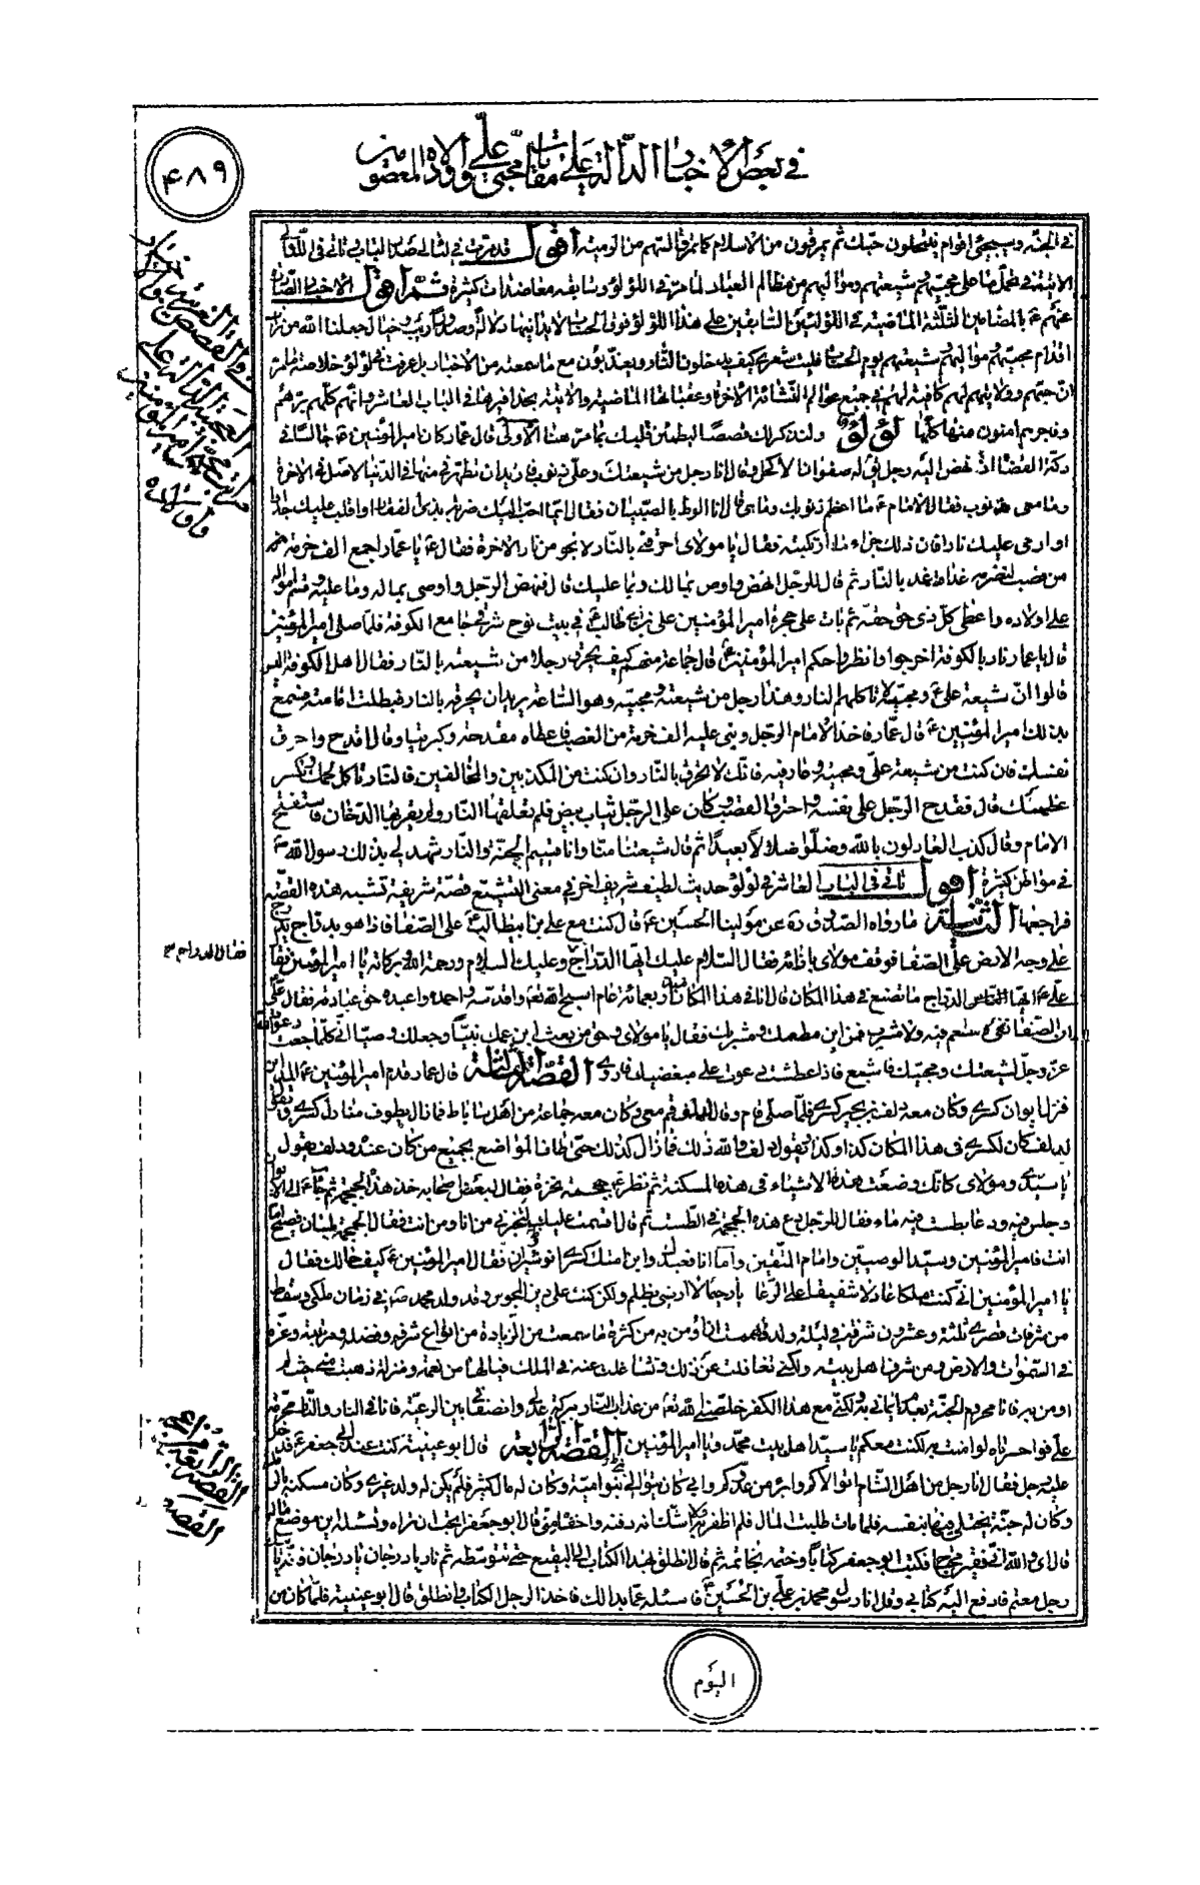 في بعض الأخبار الدالة على مقامات محبي علي وأولاده المعصومين
۴۸۹
في الجنة وسيجيء اقوام ينتحلون حبك ثم يمرقون من الاسلام كما يمرق السهم من الرمية اقول قد مرت في
الائمة في علي محبيهم وشيعتهم ومواليهم من مظالم العباد لما مر في اللؤلؤ وسابقه معاضدات كثيرة ثم اقول الاخبار
عنهم المضامين الثلثة الماضية في اللؤلؤين السابقين على هذا اللؤلؤ فوق
اقدام محبيهم ومواليهم وشيعتهم يوم الحساب فليت شعري كيف يدخلون النار ويعذبون مع ما سمعته من الاخبار بل عرفت في لؤلؤ خلاصة ما مر
ان حبهم وولايتهم لهم كافية لهم في جميع عوالم النشأة الاخرة وعقباتها الماضية والاتية في الباب العاشر وانهم كلهم برهم
وفاجرهم امنون منها كلها لؤلؤ ولنذكر لك قصصا ليطمئن قلبك بما مر هنا الاولى قال عمار كان امير المؤمنين جالسا في
دكة القضاء اذ نهض اليه رجل يقال له صفوان الاكحل وقال انا رجل من شيعتك وعلي ذنوب فاريد ان تطهرني منها في الدنيا لاصل في الاخرة
وما معي ذنوب فقال الامام ما اعظم ذنوبك وما هي قال انا الوط بالصبيان فقال ايما احب اليك ضربة بذي الفقار او اقلب عليك جدارا
او ارمي عليك نارا فان ذلك جزاء من ارتكبه فقال يا مولاي احرقني بالنار لانجو من نار الاخرة فقال يا عمار اجمع الف حزمة
من قصب لنضرمه غدا بالنار ثم قال للرجل انهض واوص بما لك وبما عليك قال فنهض الرجل واوصى بماله وما عليه وقسم امواله
على اولاده واعطى كل ذي حق حقه ثم بات على حجرة امير المؤمنين علي بن ابي طالب في بيت نوح شرقي جامع الكوفة فلما صلى امير المؤمنين
قال يا عمار ناد بالكوفة اخرجوا وانظروا حكم امير المؤمنين قال جماعة منهم كيف يحرق رجلا من شيعته بالنار فقال اهل الكوفة اليس
قالوا ان شيعة علي ومحبيه لا تاكلهم النار وهذا رجل من شيعته ومحبيه وهو الساعة يريد ان يحرقه بالنار فبطلت امامته فسمع
بذلك امير المؤمنين قال عمار فاخذ الامام الرجل وبنى عليه الف حزمة من القصب فاعطاه مقدحة وكبريتا وقال اقدح واحرق
نفسك فان كنت من شيعة علي ومحبيه وعارفيه فانك لا تحرق بالنار وان كنت من المكذبين والمخالفين فالنار تاكل لحمك وتكسر
عظمك قال فقدح الرجل على نفسه واحترق القصب وكان على الرجل ثياب بيض فلم تعلقها النار ولم يقربها الدخان فاستفتح
الامام وقال كذب العادلون بالله وضلوا ضلالا بعيدا ثم قال شيعتنا منا وانا قسيم الجنة والنار شهد لي بذلك رسول الله
في مواطن كثيرة اقول تاتي في الباب العاشر في لؤلؤ حديث لطيف شريف اخر في معنى التشيع قصة شريفة تشبه هذه القصة
فراجعها الثانية ما رواه الصدوق ره عن مولينا الحسين قال كنت مع علي بن ابيطالب على الصفا فاذا هو بدراج
على وجه الارض على الصفا فوقف مولاي بازائه فقال السلام عليك ايها الدراج وعليك السلام ورحمة الله وبركاته يا امير المؤمنين فقال
علي ايها الدراج ما تصنع في هذا المكان قال انا في هذا المكان اربعمائة عام اسبح الله تعالى واقدسه واحمده واعبده حق عبادته فقال علي
ان الصفا نقي لا مطعم فيه ولا مشرب فمن اين مطعمك ومشربك فقال يا مولاي وحق من بعث ابن عمك نبيا وجعلك وصيا اني كلما جعت دعوت الله
عز وجل لشيعتك ومحبيك فاشبع فاذا عطشت دعوت على مبغضيك فاروى القصة الثالثة قال عمار قدم امير المؤمنين المداين
فنزل بايوان كسرى وكان معه دلف بن بحير كسرى فلما صلى قام وقال لدلف قم معي وكان معه جماعة من اهل ساباط فما زال يطوف منازل كسرى ويقول
لدلف كان لكسرى في هذا المكان كذا وكذا ويقول دلف والله ذلك فما زال كذلك حتى طاف المواضع بجميع من كان عنده ودلف يقول
يا سيدي ومولاي كانك وضعت هذه الاشياء في هذه المسكنة ثم نظر الى جمجمة نخرة فقال لبعض اصحابه خذ هذه الجمجمة ثم جاء الى الايوان
وجلس فيه ودعا بطست فيه ماء فقال للرجل دع هذه الجمجمة في الطست ثم قال اقسمت عليك لتخبريني من انا ومن انت فقال الجمجمة بلسان فصيح اما
انت فامير المؤمنين وسيد الوصيين وامام المتقين واما انا فعبدك وابن امتك كسرى انوشيران فقال امير المؤمنين كيف حالك فقال
يا امير المؤمنين اني كنت ملكا عادلا شفيقا على الرعايا رحيما لا ارضى بظلم ولكن كنت على دين المجوس وقد ولد محمد في زمان ملكي وسقط
من شرفات قصري ثلثة وعشرون شرفة في ليلة ولد فهممت ان اؤمن به من كثرة ما سمعت من الزيادة من انواع شرفه وفضله ومرتبته وعزه
في السموات والارض ومن شرف اهل بيته ولكني تغافلت عن ذلك وتشاغلت عنه في الملك فيالها من نعمة ومنزلة ذهبت مني حيث لم
اومن به فانا محروم الجنة بعدم ايماني به ولكني مع هذا الكفر خلصني الله تعالى من عذاب النار ببركة عدلي وانصافي بين الرعية فانا في النار والنار محرمة
علي فواحسرتاه لو امنت به لكنت معكم يا سيد اهل بيت محمد ويا امير المؤمنين القصة الرابعة قال ابو عيينة كنت عند ابي جعفر فدخل
عليه رجل فقال انا رجل من اهل الشام اتوالاكم وابرء من عدوكم وابي كان يتوالى بني امية وكان له مال كثير فلم يكن له ولد غيري وكان مسكنه بالرملة
وكان له جنة يختلي فيها بنفسه فلما مات طلبت المال فلم اظفر به ولا اشك انه دفنه واخفاه مني قال ابو جعفر ايحب ان تراه وتسئله اين موضع ماله
قال اي والله اني فقير محتاج فكتب ابو جعفر كتابا وختمه بخاتمه ثم قال انطلق بهذا الكتاب الى البقيع حتى تتوسطه ثم ناد يا درجان يا درجان فانه ياتيك
رجل معتم فادفع اليه كتابي وقل انا رسول محمد بن علي بن الحسين فاسئله عما بدالك فاخذ الرجل الكتاب وانطلق قال ابو عيينة فلما كان من
اليوم